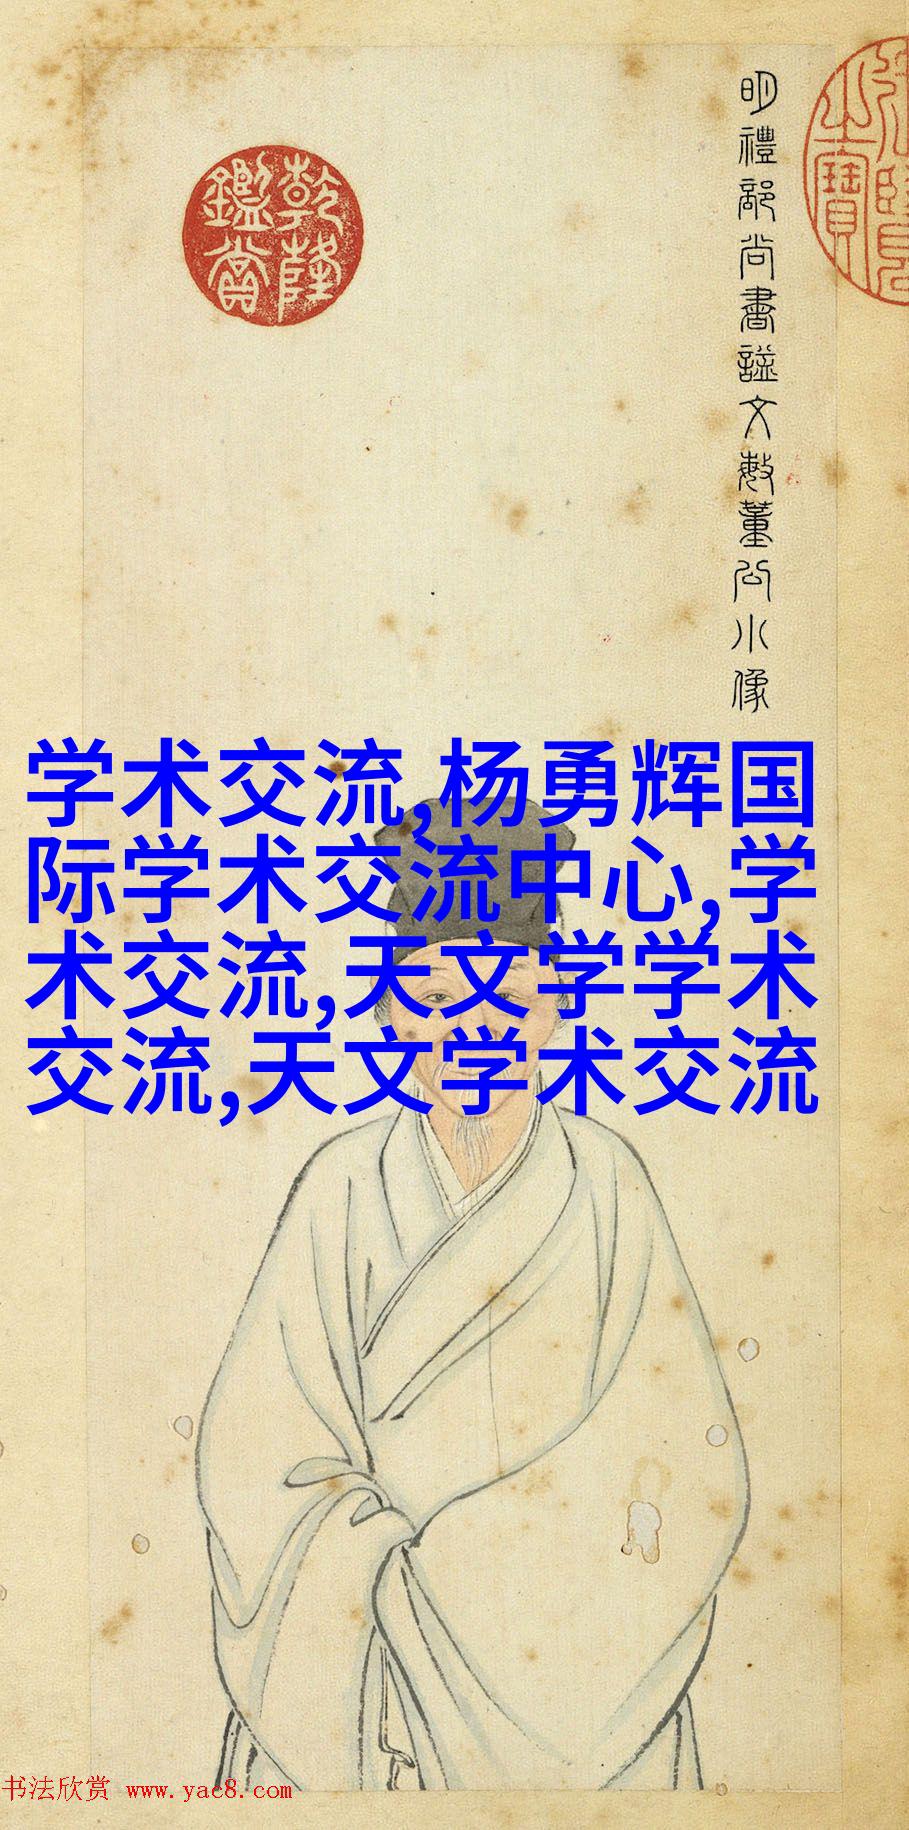 明禮部尚書諡文敏董公小像
乾隆
鑑賞
学术交流,杨勇辉国
际学术交流中心,学
术交流,天文学学术
交流,天文学术交流
书法欣赏 www.yac8.com